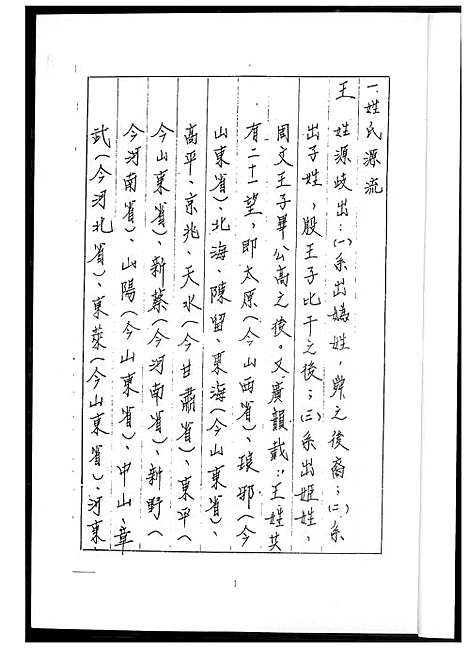 一、姓氏源流
王 姓源歧出：(一)系出媯姓，舜之後裔；(二)系
出子姓，殷王子比干之後；(三)系出姬姓，
周文王子畢公高之後。又廣韻載：王姓共
有二十一望，即太原(今山西省)、琅邪(今
山東省)、北海、陳留、東海(今山東省)、
高平、京兆、天水(今甘肅省)、東平(
今山東省)、新蔡(今河南省)、新野(
今河南省)、山陽(今山東省)、中山、章
武(今河北省)、東萊(今山東省)、河東
1